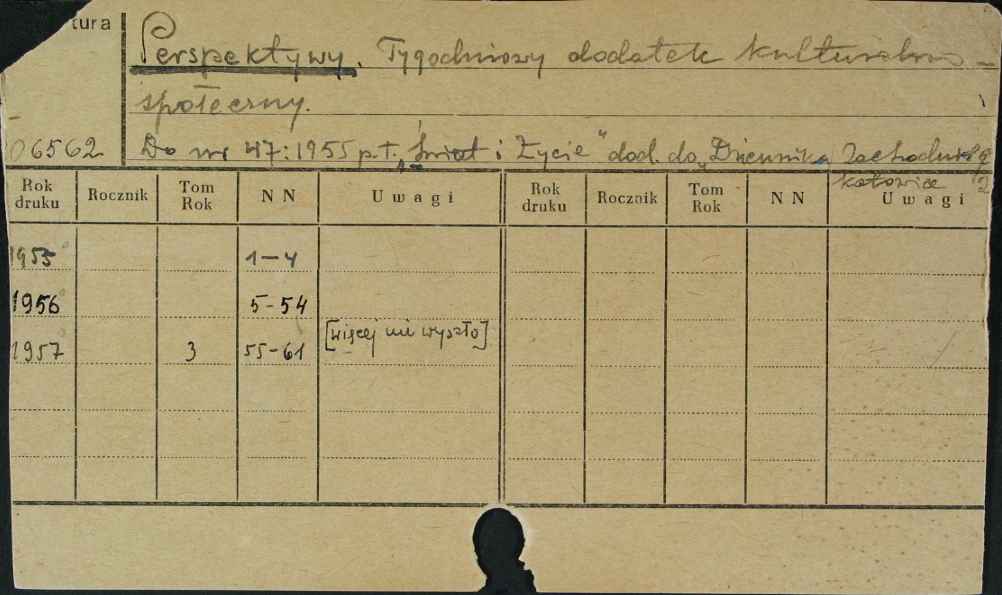 tura
Perspektywy. Tygodniowy dodatek kulturalno-
społeczny.
06562 Do nr 47:1955 p.t. „Świat i Życie" dod. do „Dziennika
Katowice
Rok druku Rocznik Tom Rok N N Uwagi Rok druku Rocznik Tom Rok N N Uwagi
1955 1-4
1956 5-54
1957 3 55-61 [więcej nie wyszło]